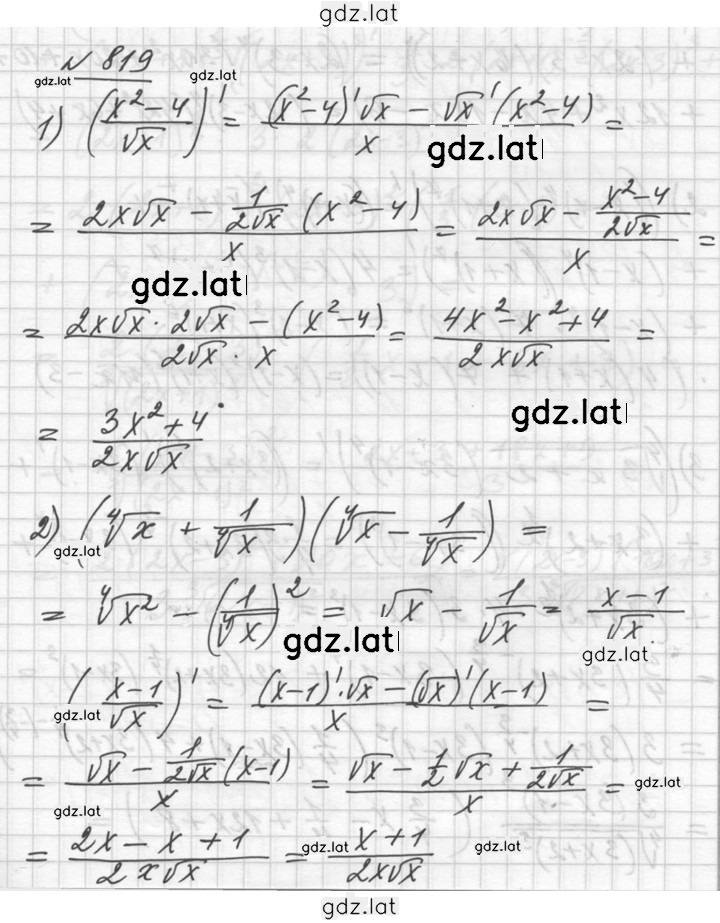 gdz.lat
№ 819
gdz.lat gdz.lat
1) ((x² − 4)/√x)' = ((x² − 4)'√x − √x'(x² − 4))/x =
gdz.lat
= (2x√x − 1/(2√x) (x² − 4))/x = (2x√x − (x² − 4)/(2√x))/x =
gdz.lat
= (2x√x · 2√x − (x² − 4))/(2√x · x) = (4x² − x² + 4)/(2x√x) =
= (3x² + 4)/(2x√x)
gdz.lat
2) (⁴√x + 1/⁴√x)(⁴√x − 1/⁴√x) =
gdz.lat
= ⁴√x² − (1/⁴√x)² = √x − 1/√x = (x − 1)/√x
gdz.lat
gdz.lat
((x − 1)/√x)' = ((x − 1)' · √x − (√x)'(x − 1))/x =
gdz.lat
= (√x − 1/(2√x) (x − 1))/x = (√x − 1/2 √x + 1/(2√x))/x =
gdz.lat
gdz.lat
= (2x − x + 1)/(2x√x) = (x + 1)/(2x√x)
gdz.lat gdz.lat
gdz.lat